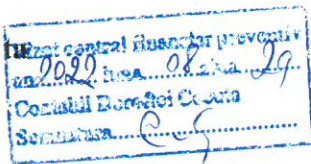 Vizat control financiar preventiv
an 2022 luna 08 ziua 29
Contabil
Semnatura